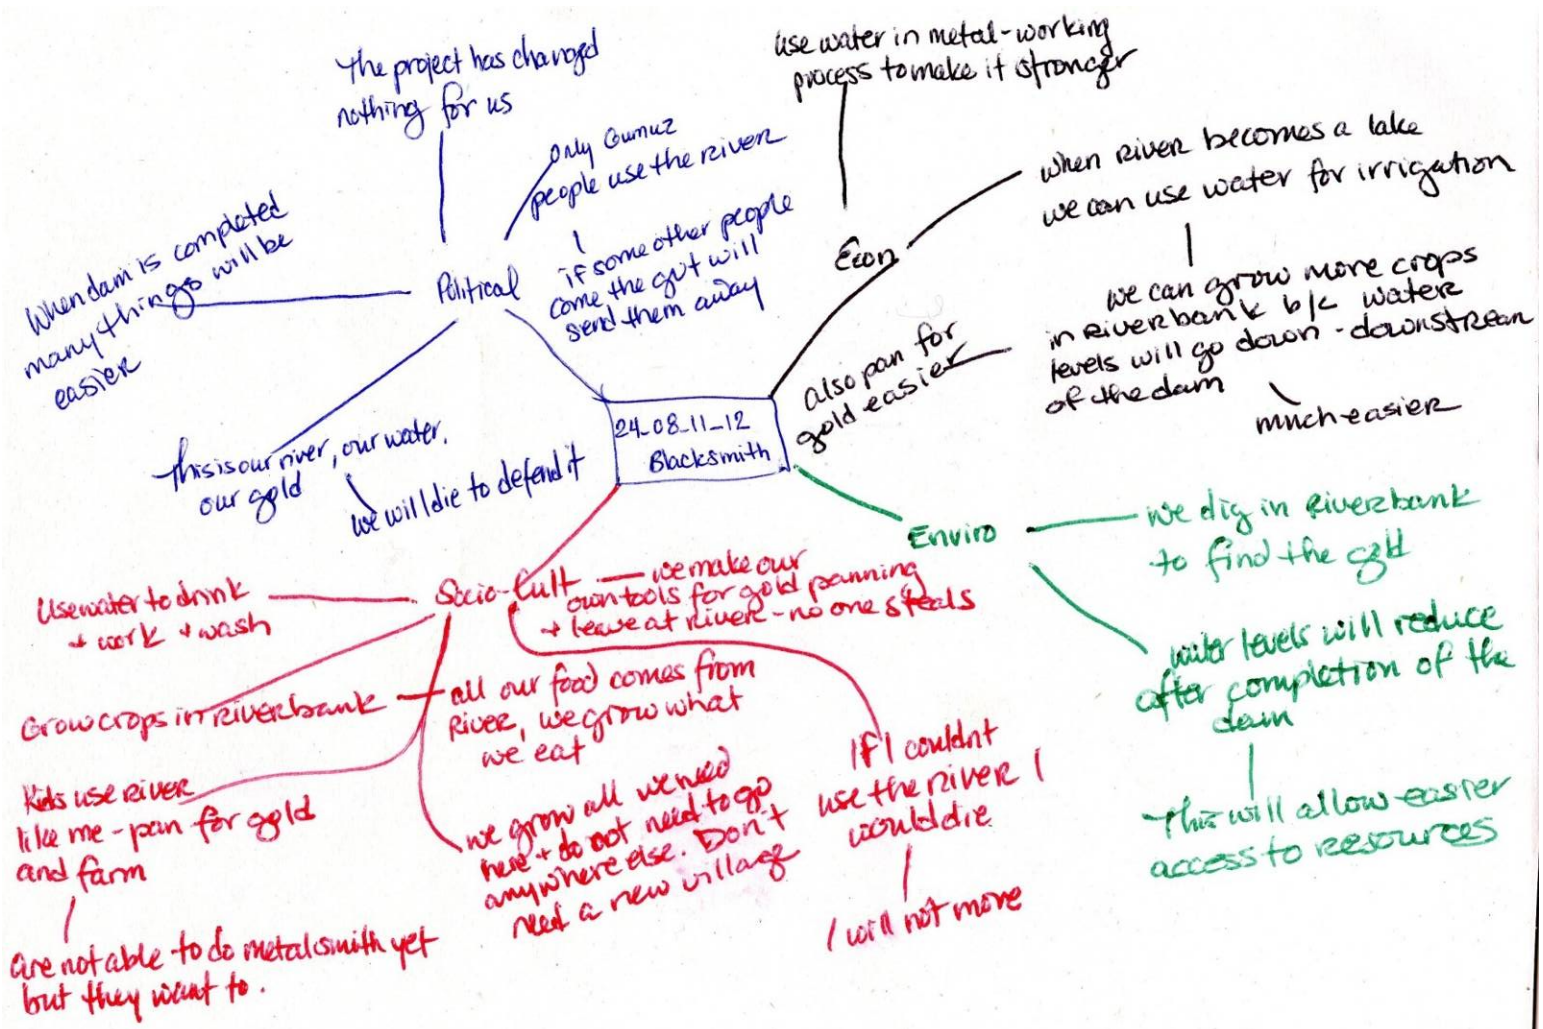 The project has changed
nothing for us
only Gumuz
people use the river
if some other people
come the gvt will
send them away
When dam is completed
many things will be
easier
Political
This is our river, our water,
our gold
we will die to defend it
use water in metal-working
process to make it stronger
Econ
when river becomes a lake
we can use water for irrigation
we can grow more crops
in riverbank b/c water
levels will go down - downstream
of the dam
much easier
also pan for
gold easier
24_08_11_12
Blacksmith
Enviro
we dig in riverbank
to find the gold
water levels will reduce
after completion of the
dam
This will allow easier
access to resources
Socio-Cult
we make our
own tools for gold panning
+ leave at river - no one steals
Use water to drink
+ work + wash
Grow crops in riverbank
all our food comes from
River, we grow what
we eat
Kids use river
like me - pan for gold
and farm
are not able to do metalsmith yet
but they want to.
we grow all we need
here + do not need to go
anywhere else. Don't
need a new village
If I couldnt
use the river I
would die
I will not move